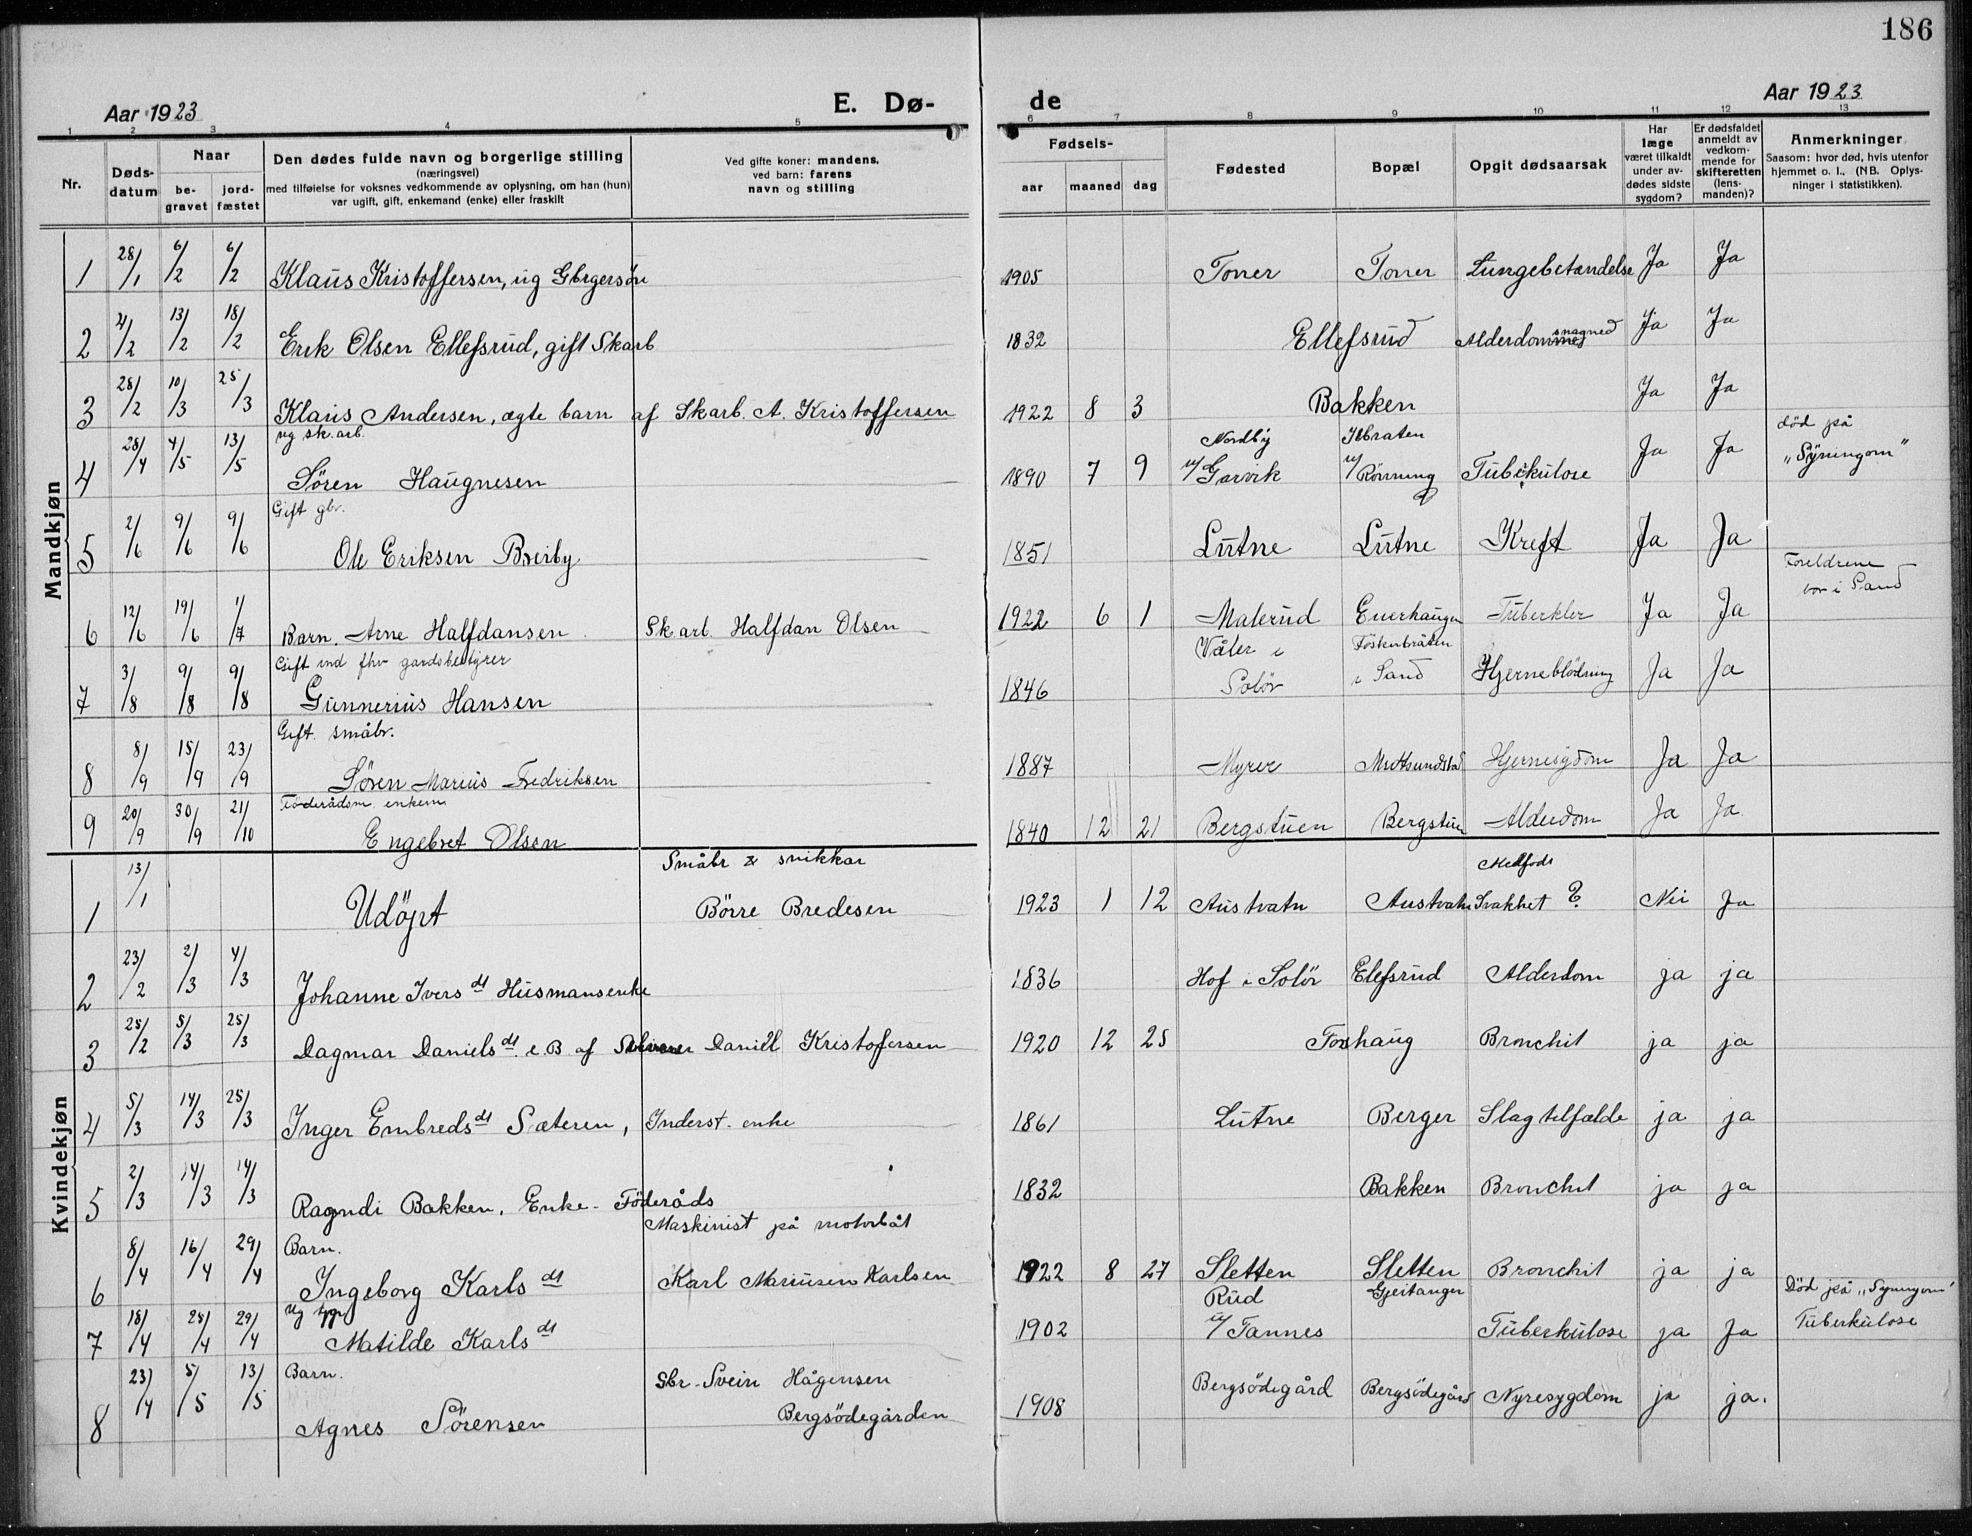 186
Aar 1923 E. Dø- de Aar 1923
1 2 3 4 5 6 7 8 9 10 11 12 13
Nr. Døds-datum Naar be-gravet jord-fæstet Den dødes fulde navn og borgerlige stilling (næringsvei) med tilføielse for voksnes vedkommende av oplysning, om han (hun) var ugift, gift, enkemand (enke) eller fraskilt Ved gifte koner: mandens, ved barn: farens navn og stilling Fødsels- aar maaned dag Fødested Bopæl Opgit dødsaarsak Har læge været tilkaldt under av-dødes sidste sygdom? Er dødsfaldet anmeldt av vedkom-mende for skifteretten (lens-manden)? Anmerkninger. Saasom: hvor død, hvis utenfor hjemmet o. l., (NB. Oplys-ninger i statistikken).
Mandkjøn
1 28/1 6/2 6/2 Klaus Kristoffersen, ug Gbrgersøn 1905 Toner Toner Lungebetændelse Ja Ja
2 4/2 13/2 18/2 Erik Olsen Ellefsrud, gift Skarb 1832 Ellefsrud Alderdom Ja Ja
3 28/2 10/3 25/3 Klaus Andersen, ægte barn af Skarb. A. Kristoffersen 1922 8 3 Bakken Ja Ja
4 28/4 4/5 13/5 ug sk.arb. Søren Haugnesen 1890 7 9 Nordby u/ Garvik u/ Rørnung Tuberkulose Ja Ja død på "Syningom"
5 2/6 9/6 9/6 Gift gbr. Ole Eriksen Breiby 1851 Lutne Lutne Kreft Ja Ja
6 12/6 19/6 1/7 Barn. Arne Halfdansen Skarb. Halfdan Olsen 1922 6 1 Malerud Tuberkler Ja Ja Foreldrene bor i Sand
7 3/8 9/8 9/8 Gift ind fhv gardsbestyrer Gunnerius Hansen 1846 Våler i Solör i Sand Hjerneblödning Ja Ja
8 8/9 15/9 23/9 Gift. småbr. Sören Marius Fredriksen 1887 Myrer Hjernesygdom Ja Ja
9 20/9 30/9 21/10 Föderådsm. enkem Engebret Olsen 1840 12 21 Bergstuen Bergstuen Alderdom Ja Ja
Kvindekjøn
1 13/1 Udöpt Småbr & snikkar Börre Bredesen 1923 1 12 Austvatn Austvatn Medfödt svakhet ? Nei Ja
2 23/2 2/3 4/3 Johanne Ivers dt Husmansenke 1836 Hof i Solör Elefsrud Alderdom ja ja
3 25/2 5/3 25/3 Dagmar Daniels dt. e.B af Daniel Kristofersen 1920 12 25 Foshaug Bronchit ja ja
4 5/3 14/3 25/3 Inger Embreds dt Sæteren, Inderst. enke 1861 Lutne Berger Slagtilfælde ja ja
5 2/3 14/3 14/3 Ragndi Bakken, Enke - Föderåds 1832 Bakken Bronchit ja ja
6 8/4 16/4 29/4 Barn. Ingeborg Karls dt Maskinist på motorbåt Karl Mariusen Karlsen 1922 8 27 Sletten Sletten Bronchit ja ja
7 18/4 28/4 29/4 Ug Matilde Karls dt 1902 Rud u/ Tannes Gjeitanger Tuberkulose ja Ja Död på "Syningom" Tuberkulose
8 23/4 5/5 13/5 Barn. Agnes Sörensen Gbr. Svein Hågensen Bergsödegården 1908 Bergsödegård Bergsödegård Nyresygdom ja ja.